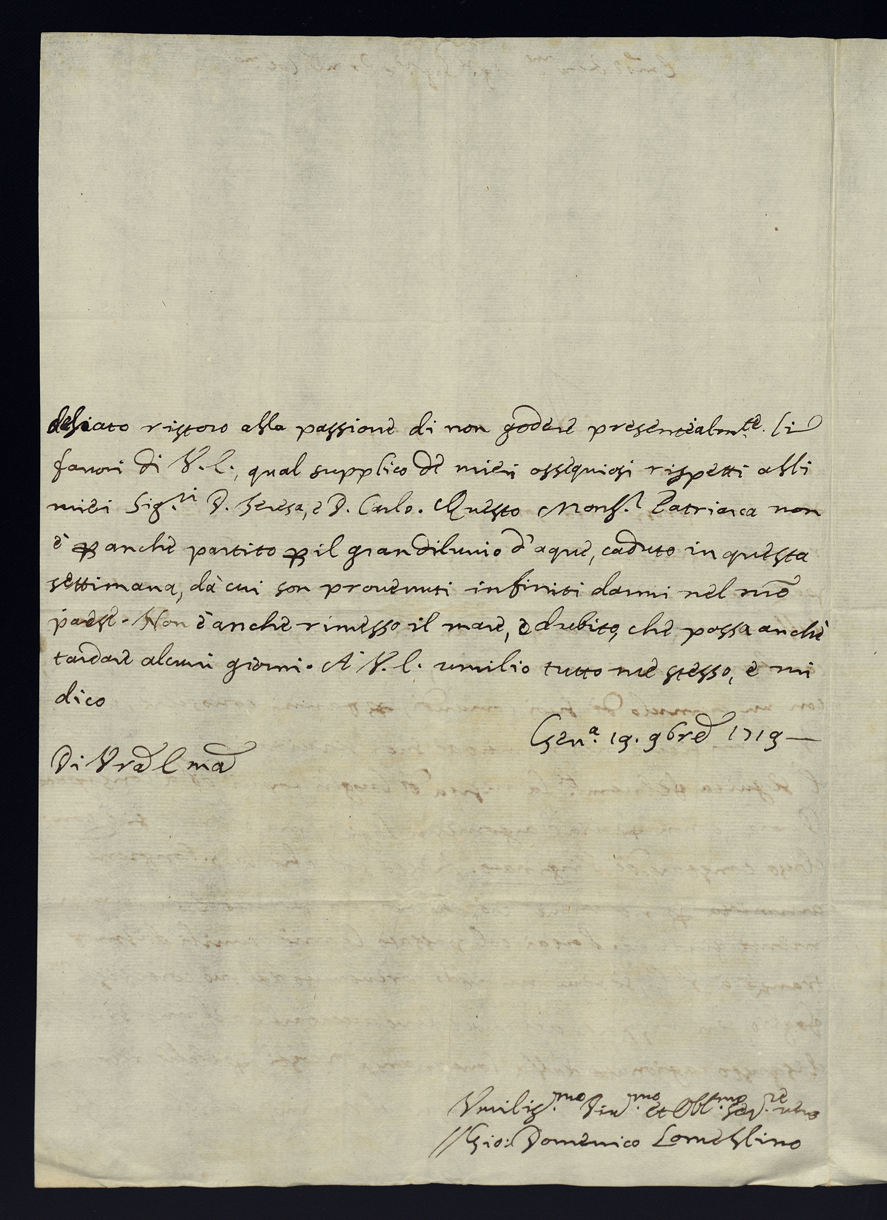 desiato ristoro alla passione di non godere presentealm.te li
favori di V.I., qual supplico de miei ossequiosi rispetti alli
miei Sig.ri D. Teresa, e D. Carlo. Questo Mons.r Patriarca non
è ꝑ anche partito ꝑ il gran diluvio d'aque, caduto in questa
settimana, dà cui son provenuti infiniti danni nel mõ
paese. Non è anche rimesso il mare, e dubito, che possa anche
tardare alcuni giorni. A V.I. umilio tutto me stesso, e mi
dico
Gen.a 19. 9bre 1719
Di Vra I ma
Umilis.mo Dev.mo et Obl.mo Ser.re vero
Gio: Domenico Lomellino